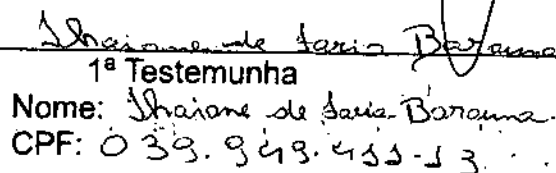 Thaiane de Faria Barauna
1ª Testemunha
Nome: Thaiane de Faria Barauna.
CPF: 039.949.411-13